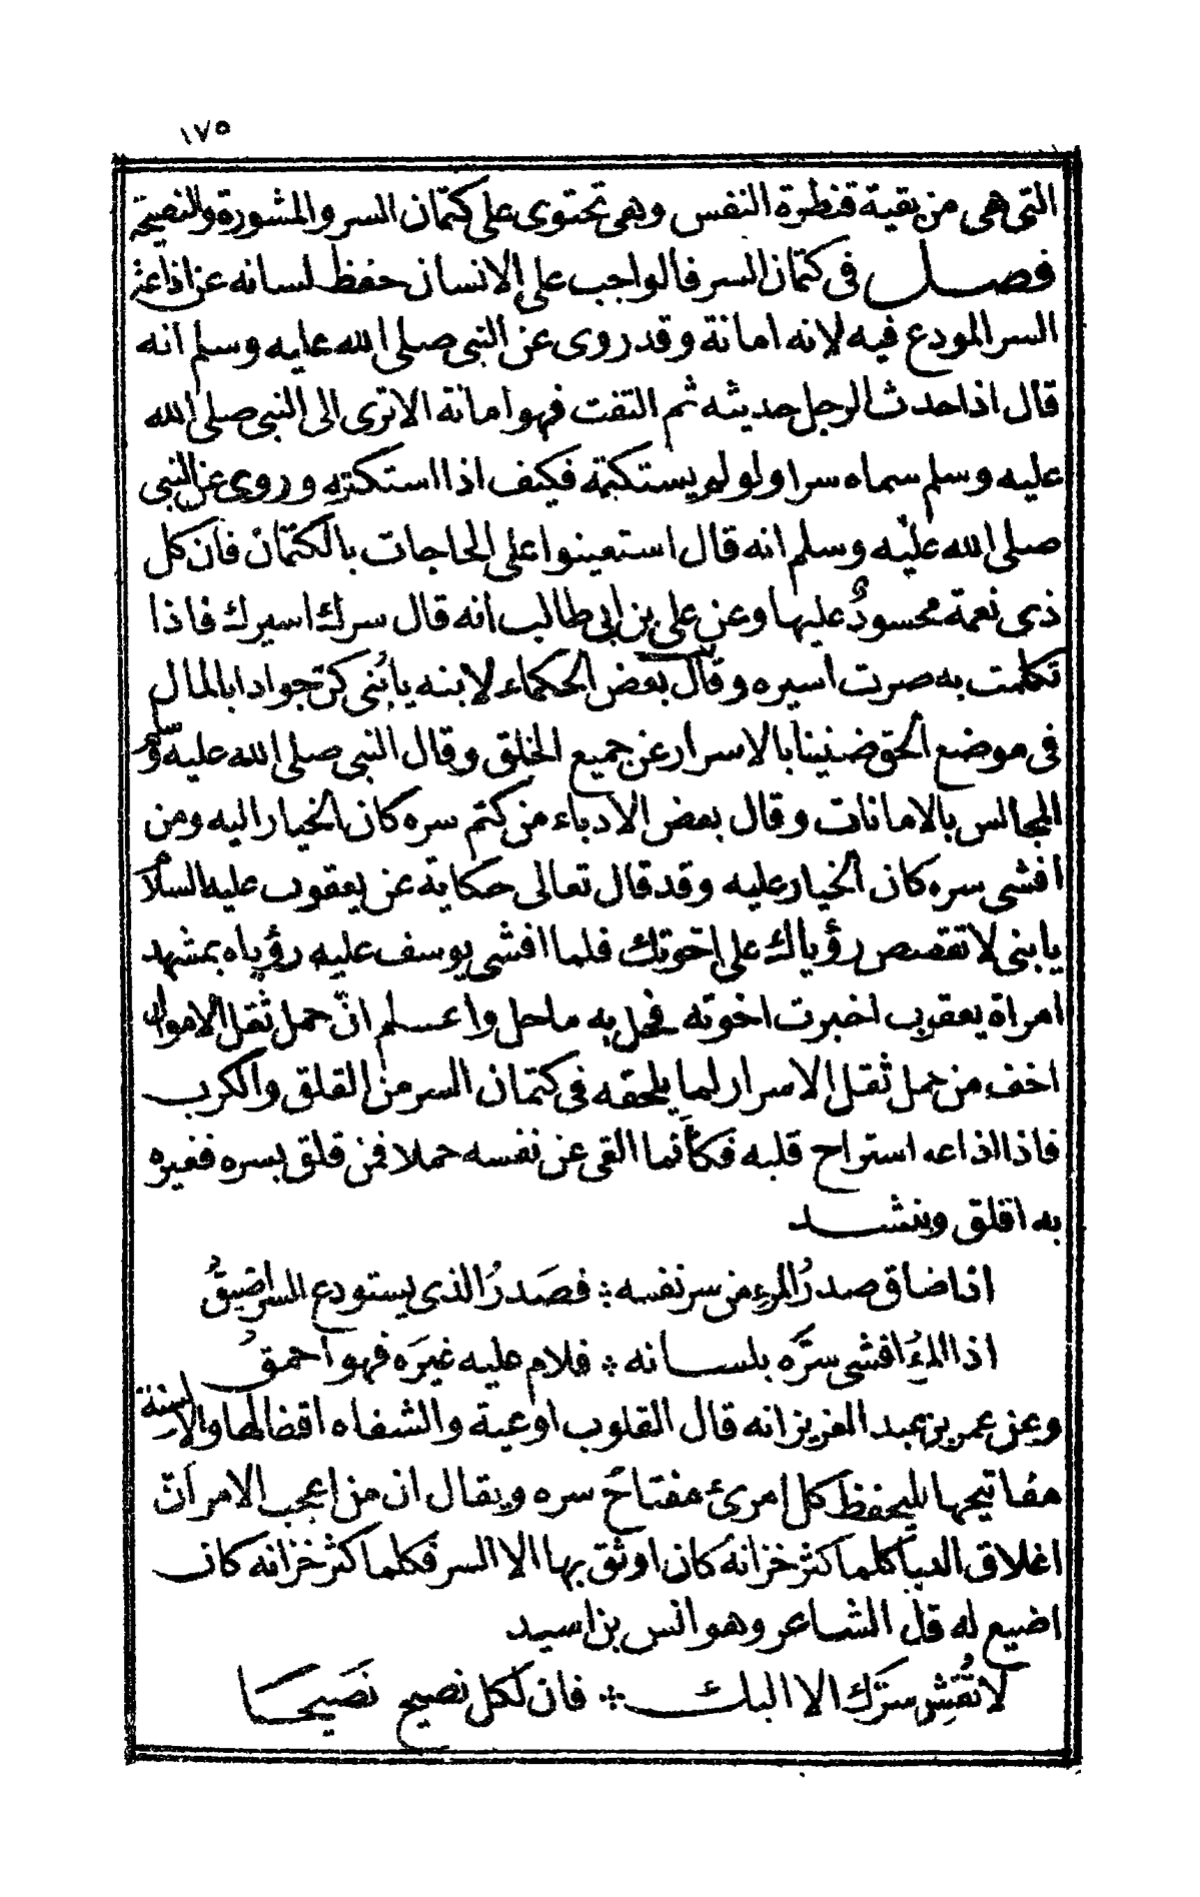 ١٧٥
التى هى من بقية قنطرة النفس وهى تحتوى على كتمان السر والمشورة والنصيحة
فصل فى كتمان السر فالواجب على الانسان حفظ لسانه عن اذاعة
السر المودع فيه لانه امانة وقد روى عن النبى صلى الله عليه وسلم انه
قال اذا حدث الرجل حديثه ثم التفت فهو امانة الا ترى الى النبى صلى الله
عليه وسلم سماه سرا ولو لم يستكتمه فكيف اذا استكتمه وروى عن النبى
صلى الله عليه وسلم انه قال استعينوا على الحاجات بالكتمان فان كل
ذى نعمة محسودٌ عليها وعن على بن ابى طالب انه قال سرك اسيرك فاذا
تكلمت به صرت اسيره وقال بعض الحكماء لابنه يا بُنى كن جوادا بالمال
فى موضع الحق ضنينا بالاسرار عن جميع الخلق وقال النبى صلى الله عليه وسلم
المجالس بالامانات وقال بعض الادباء من كتم سره كان الخيار اليه ومن
افشى سره كان الخيار عليه وقد قال تعالى حكاية عن يعقوب عليه السلام
يا بنى لا تقصص رؤياك على اخوتك فلما افشى يوسف عليه رؤياه بمشهد
امراة يعقوب اخبرت اخوته فحل به ما حل واعلم انّ حمل ثقل الاموال
اخف من حمل ثقل الاسرار لما يلحقه فى كتمان السر من القلق والكرب
فاذا اذاعه استراح قلبه فكأنما القى عن نفسه حملا فمن قلق بسره فغيره
به اقلق وينشد
اذا ضاق صدرُ المرءِ من سر نفسه ؞ فصَدرُ الذى يستودع السر اضيقُ
اذا المرءُ افشى سرَّه بلسانه ؞ فلام عليه غيرَه فهو احمقُ
وعن عمر بن عبد العزيز انه قال القلوب اوعية والشفاه اقفالها والالسنة
مفاتيحها فليحفظ كل امرئ مفتاح سره ويقال ان من اعجب الامر انّ
اغلاق الدنيا كلما كثر خزانه كان اوثق بها الا السر فكلما كثر خزانه كان
اضيع له قال الشاعر وهو انس بن اسيد
لا تُفشِ سرَّك الا اليك ؞ فان لكل نصيح نَصيحا